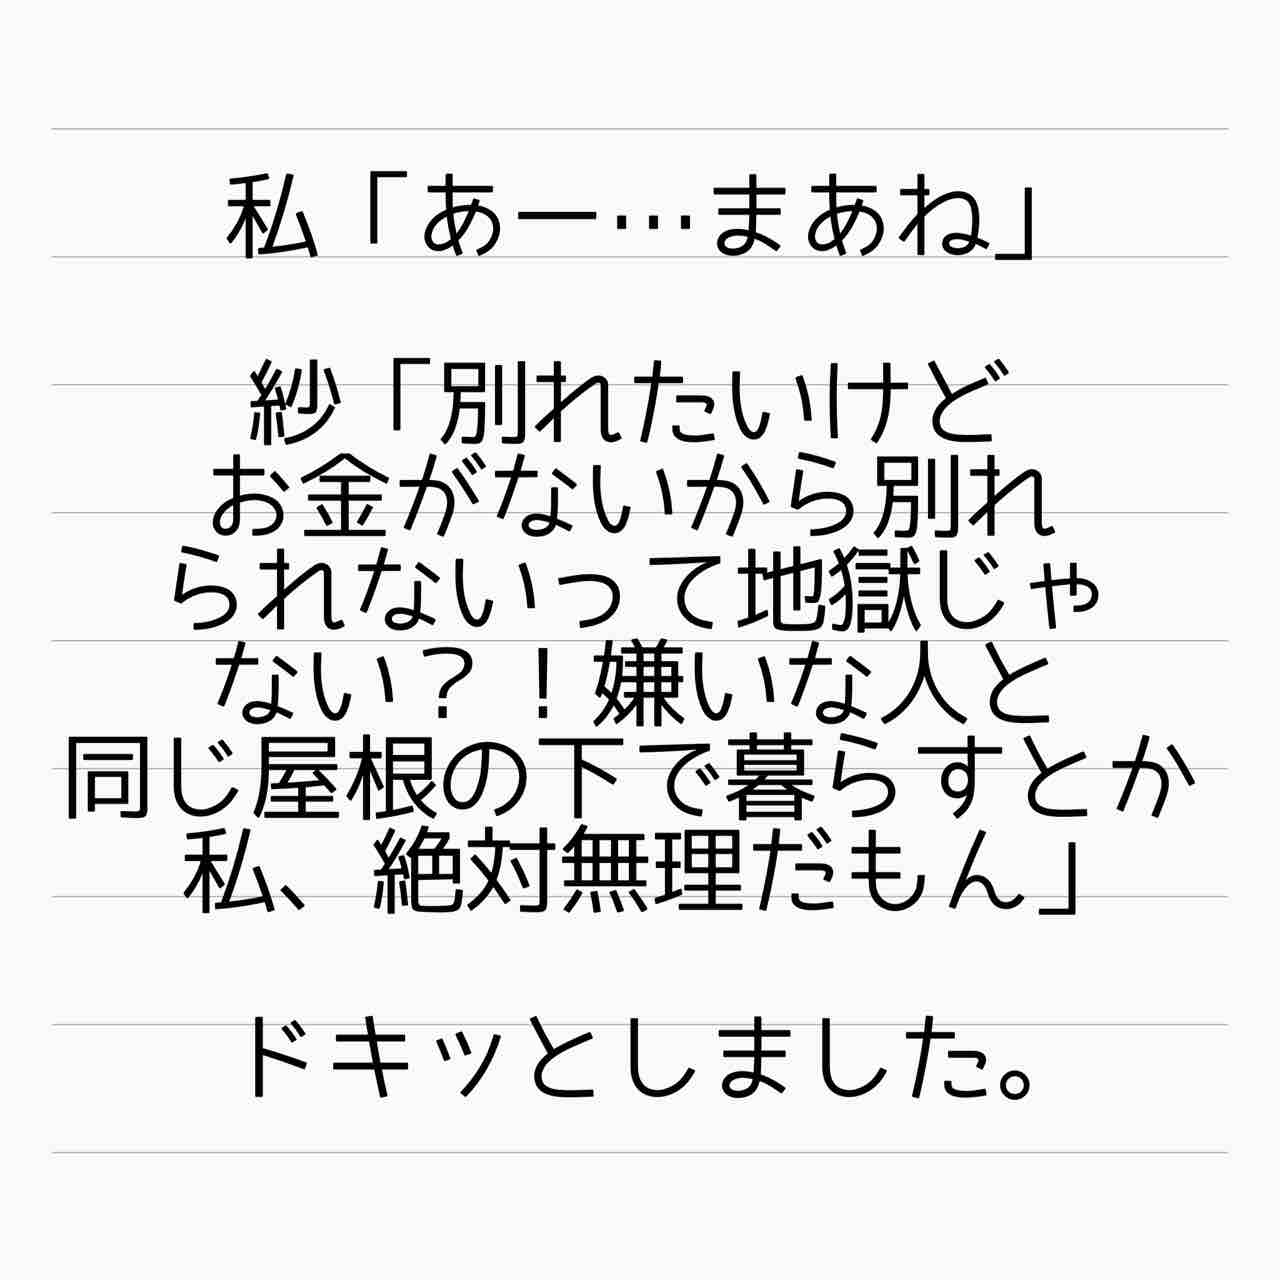 私「あー…まあね」
紗「別れたいけど
お金がないから別れ
られないって地獄じゃ
ない？！嫌いな人と
同じ屋根の下で暮らすとか
私、絶対無理だもん」
ドキッとしました。